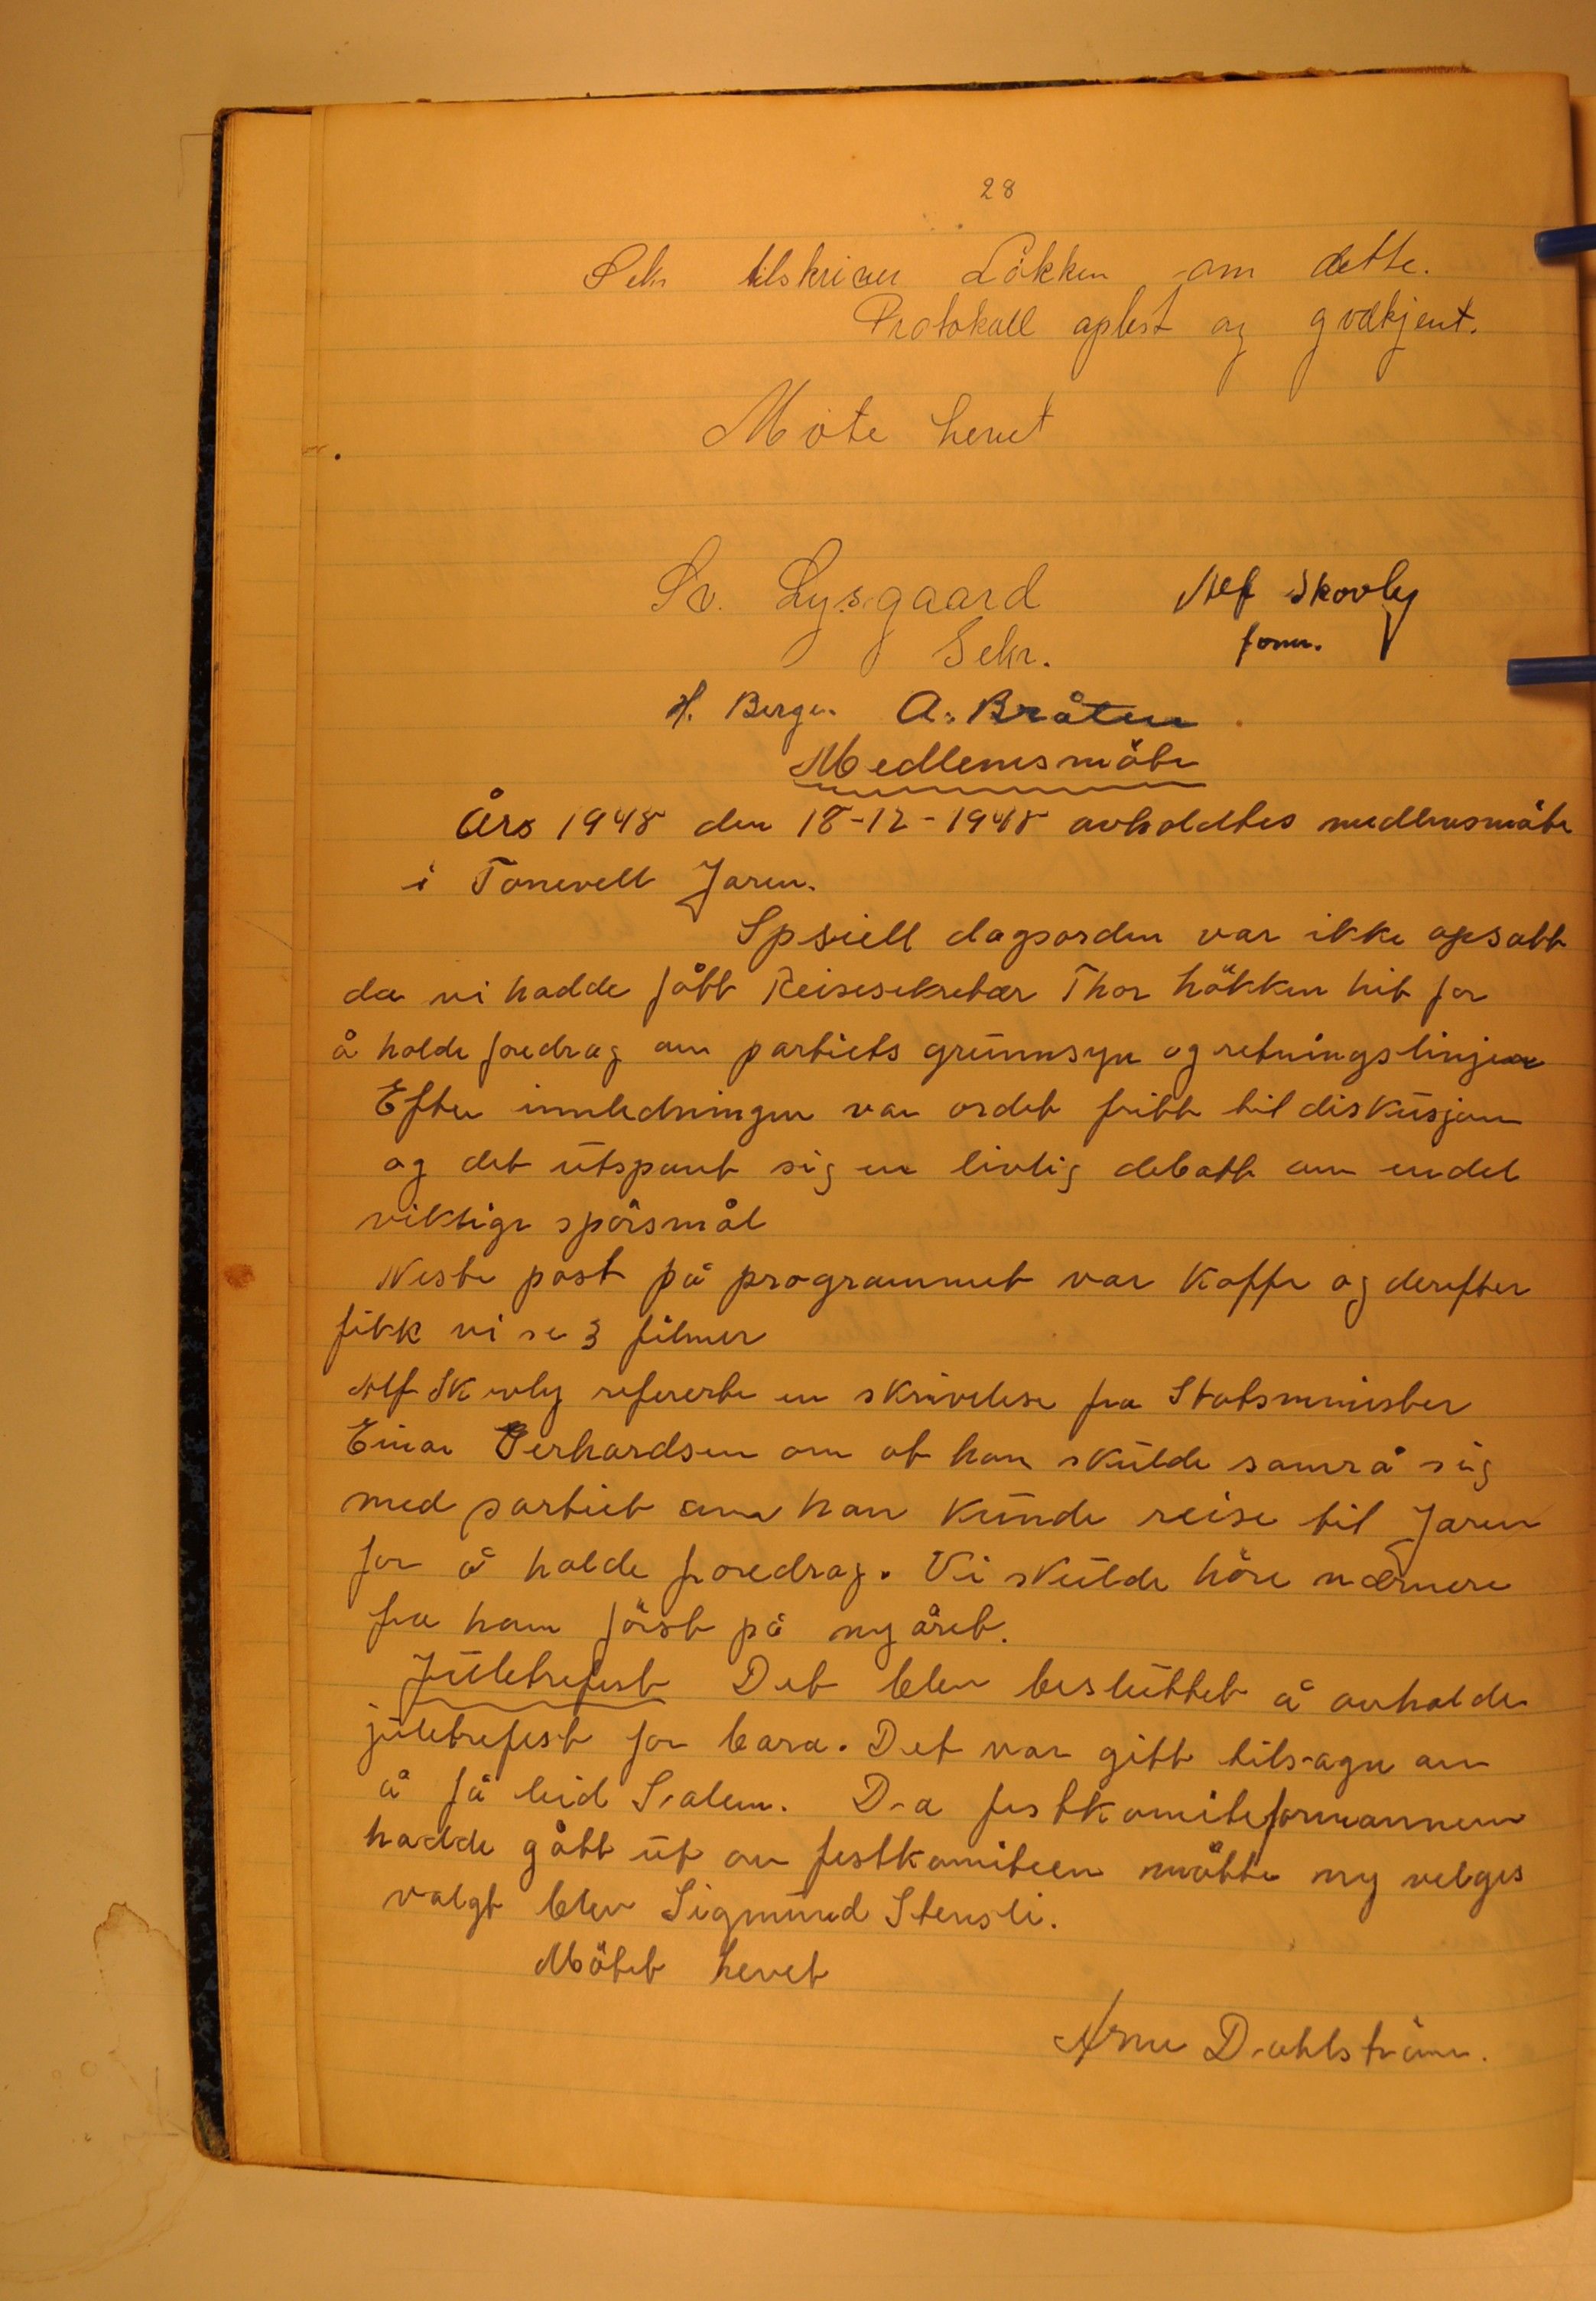 28
Sekr tilskriver Løkken om dette.
Protokoll oplest og godkjent.
Møte hevet
Sv. Lysgaard Alf Skovly
Sekr. form.
H. Berger A. Bråten
Medlemsmöte
Års 1948 den 18-12-1948 avholdtes medlemsmöte
i Tonevell Jaren.
Spsiell dagsorden var ikke opsatt
da vi hadde fått Reisesekretær Thor Lökken hit for
å holde foredrag om partiets grunnsyn og retningslinjer
Efter innledningen var ordet fritt til diskusjon
og det utspant sig en livlig debatt om endel
viktige spörsmål
Neste post på programmet var Kaffe og derefter
fikk vi se 3 filmer
Alf Skovly refererte en skrivelse fra Statsminister
Einar Gerhardsen om at han skulde samrå sig
med partiet om han kunde reise til Jaren
for å holde foredrag. Vi skulde höre nærmere
fra ham först på nyåret.
Juletrefest Det blev besluttet å avholde
juletrefest for bara. Det var gitt tilsagn om
å få leid Salem. Da festkomiteformannen
hadde gått ut av festkomiteen måtte ny velges
valgt blev Sigmund Stensli.
Mötet hevet
Arne Dahlström.